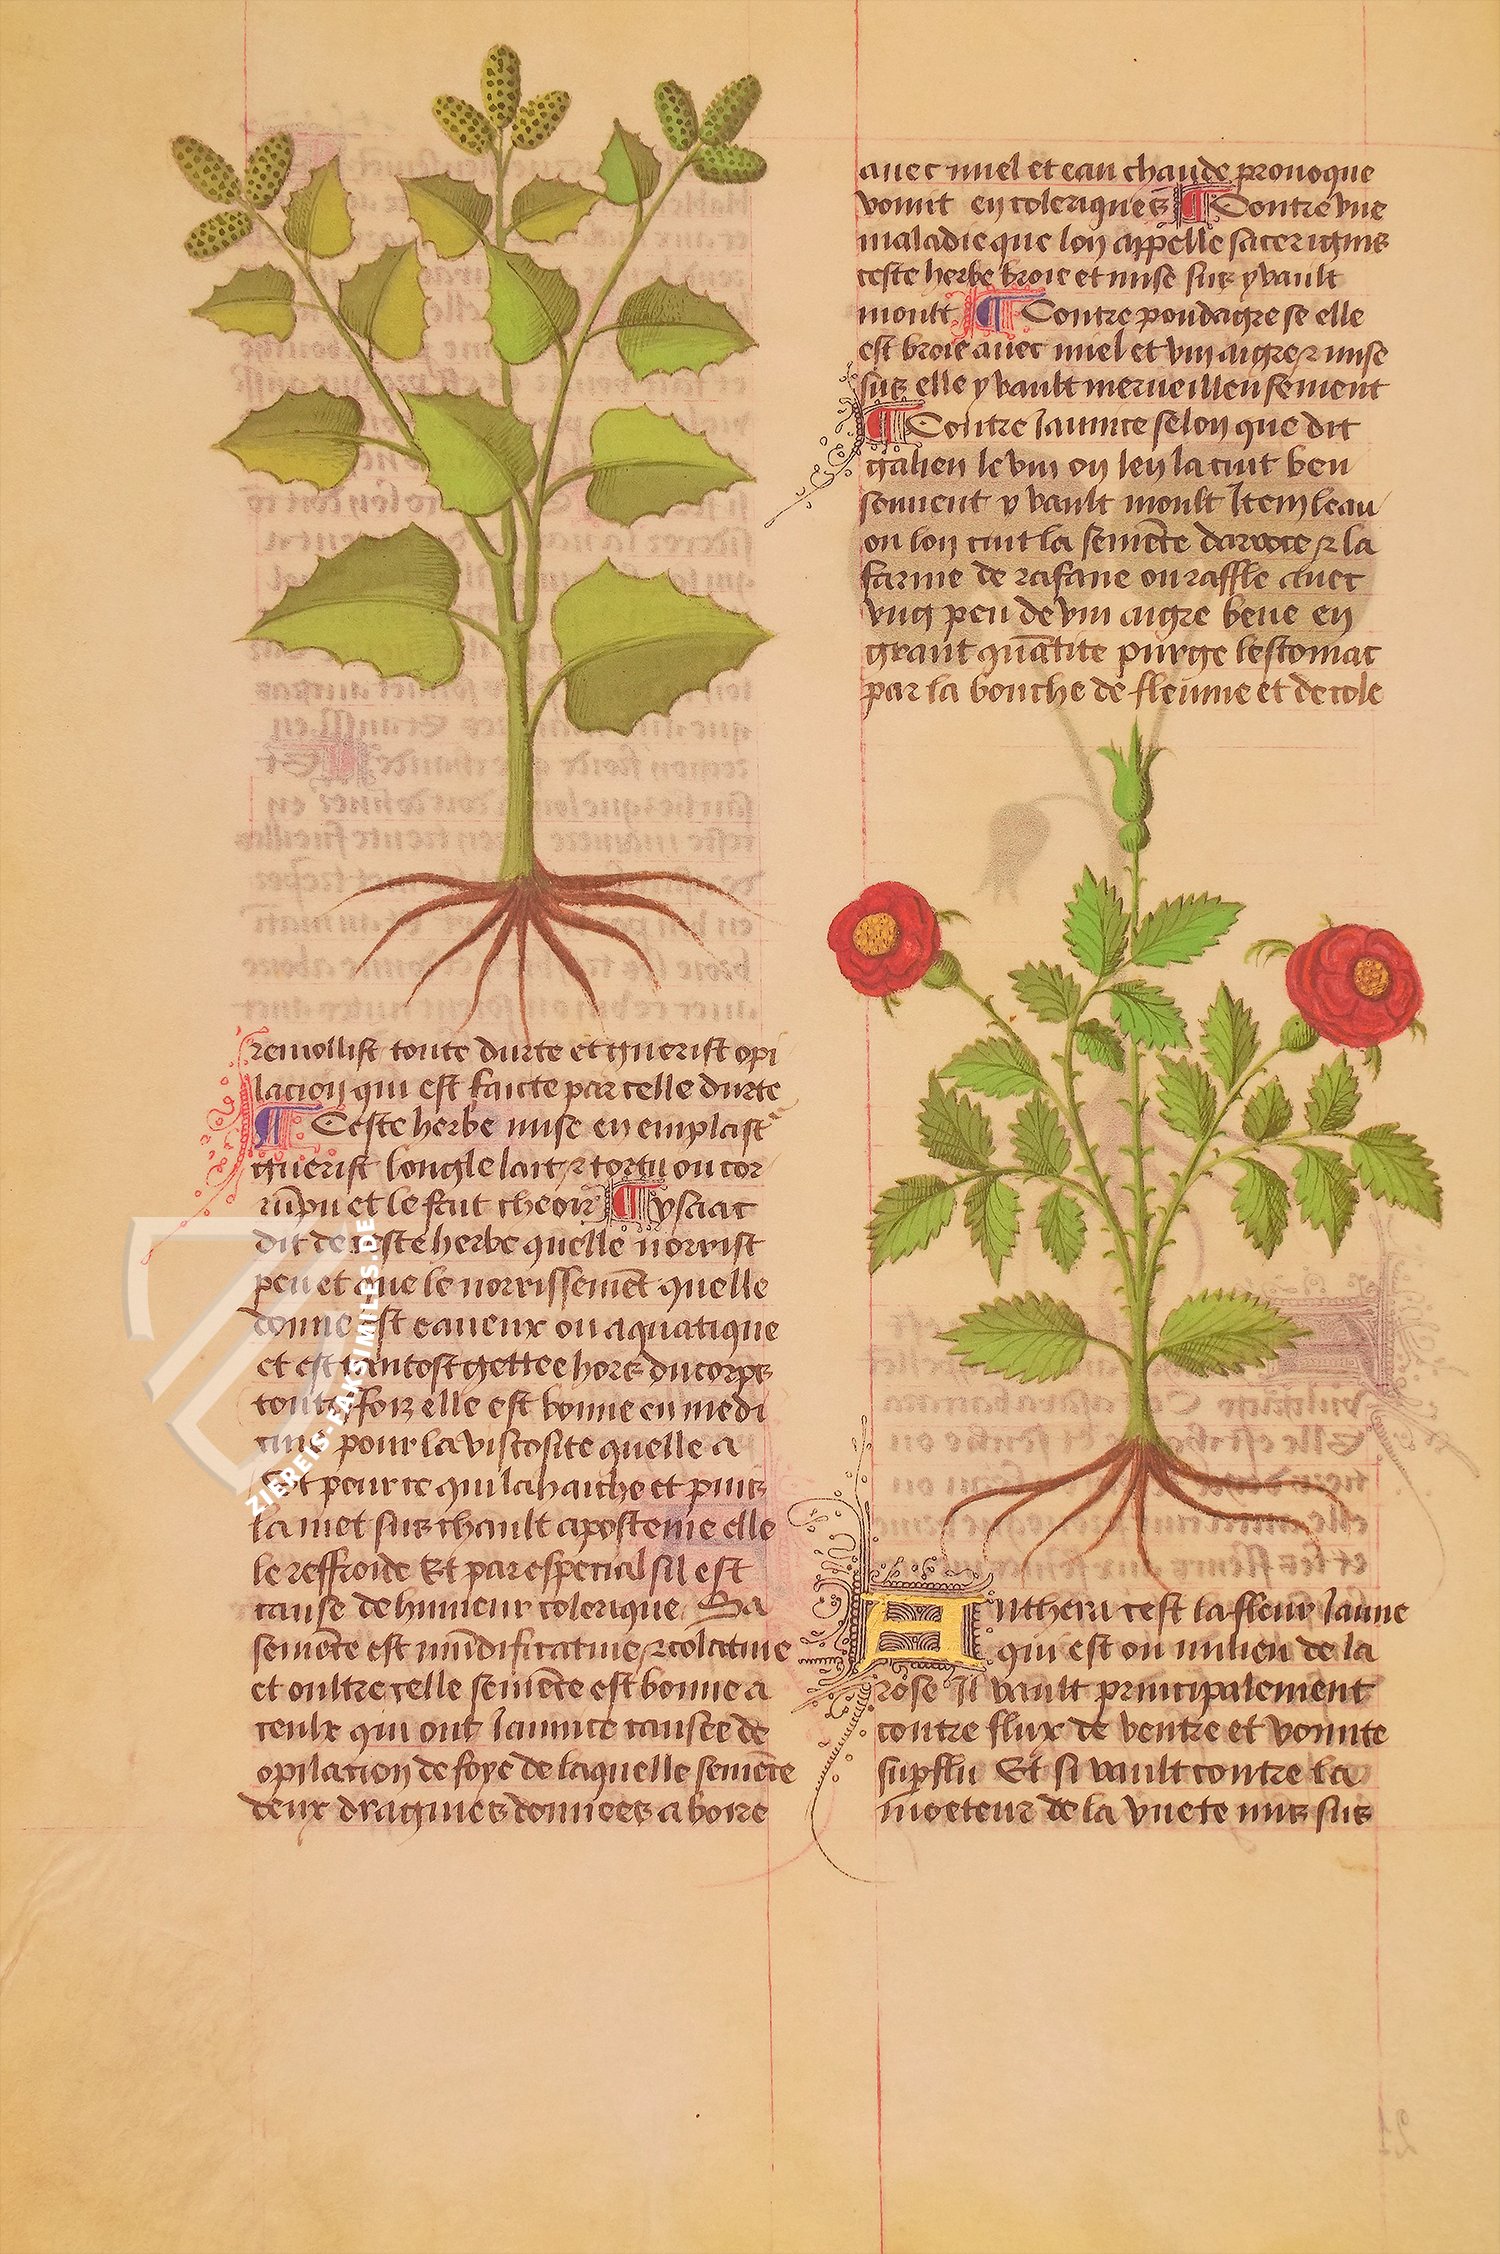 remollist toute durte et guerist opi
lacion qui est faicte par celle durte
¶ Ceste herbe mise en emplast
guerist longle lait ⁊ tortu ou cor
rūpu et le fait cheoir ¶ ysaac
dit de ceste herbe quelle norrist
peu et que le norrissemēt quelle
donne est eaueux ou aquatique
et est tantost gettee hors du corps
toutesfoiz elle est bonne en medi
cine pour la viscosite quelle a
Et pour ce qui la hache et puis
la met sus chault aposteme elle
le reffroide Et par especial sil est
cause de humeur colerique Sa
semēce est mūdificatiue ⁊ colatiue
et oultre celle semēce est bonne a
ceulx qui ont Iaunice causee de
opilacion de foye de laquelle semēce
deux dragmes donnees a boire
auec miel et eau chaude prouoque
vomit en coleriques ¶ Contre vne
maladie que lon appelle sacer ignis
ceste herbe broie et mise sus y vault
moult ¶ Contre poudagre se elle
est broie auec miel et vin aigre ⁊ mise
sus elle y vault merueilleusement
¶ Contre Iaunice selon que dit
galien le vin ou len la cuit beu
souuent y vault moult Item leau
ou lon cuit la semēce darroce ⁊ la
farine de rafane ou raffle auec
vng peu de vin aigre beue en
grant quātite purge lestomac
par la bouche de fleume et de cole
Anthera cest la fleur Iaune
qui est ou milieu de la
rose Il vault principalement
contre flux de ventre et vomite
supflu Et si vault contre la
moeteur de la vuete mis sus
ZIEREIS-FAKSIMILES.DE